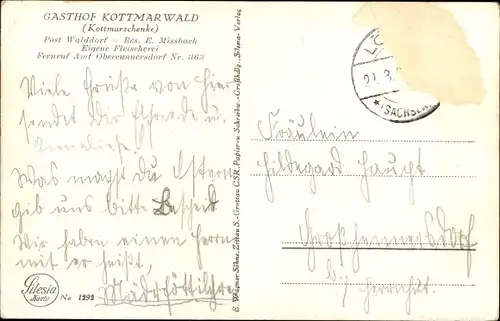 GASTHOF KOTTMARWALD
(Kottmarschenke)
Post Walddorf – Bes. E. Missbach
Eigene Fleischerei
Fernruf Amt Obercunnersdorf Nr. 363
Viele Grüße von hier
sendet Dir u.
Anneliese!
Was machst du Ostern
gib uns bitte Bescheid
Wir haben einen Herrn
mit er heißt,
Silesia
Karte
No 1292
E. Wagner Söhne, Zittau S.-Grottau CSR. Papier- u. Schreibw.-Großhdlg. „Silesia-Verlag
LÖ
22. 3.
* (SACHSEN)
Fräulein
Hildegard Haucht
Großhennersdorf
bei Herrnhut.